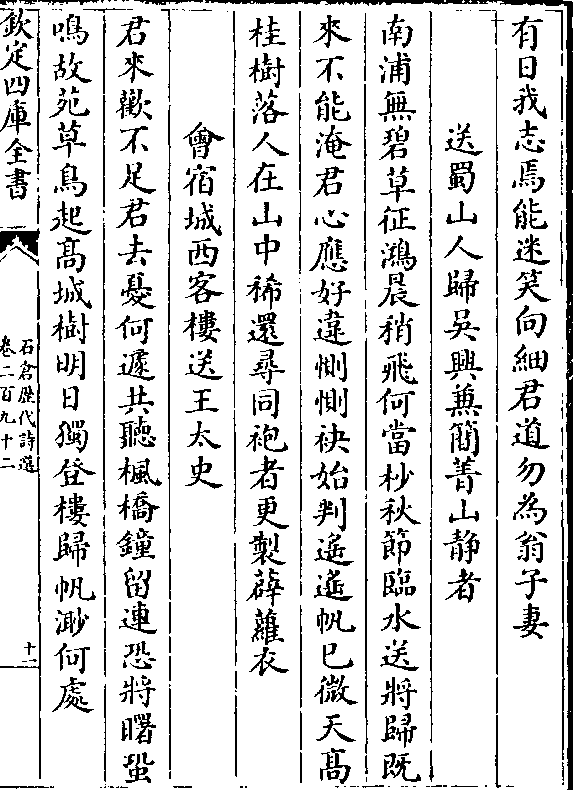 有日我志焉能迷笑向細君道勿為翁子妻
送蜀山人歸吳興兼簡菁山靜者
南浦無碧草征鴻晨稍飛何當杪秋節臨水送將歸既
來不能淹君心應好違惻惻袂始判遙遙帆已微天髙
桂樹落人在山中稀還尋同袍者更製薜蘿衣
會宿城西客樓送王太史
君來歡不足君去憂何遽共聽楓橋鐘留連恐將曙蛩
鳴故苑草鳥起髙城樹明日獨登樓歸帆渺何處
欽定四庫全書
石倉歴代詩選
卷二百九十二
十二